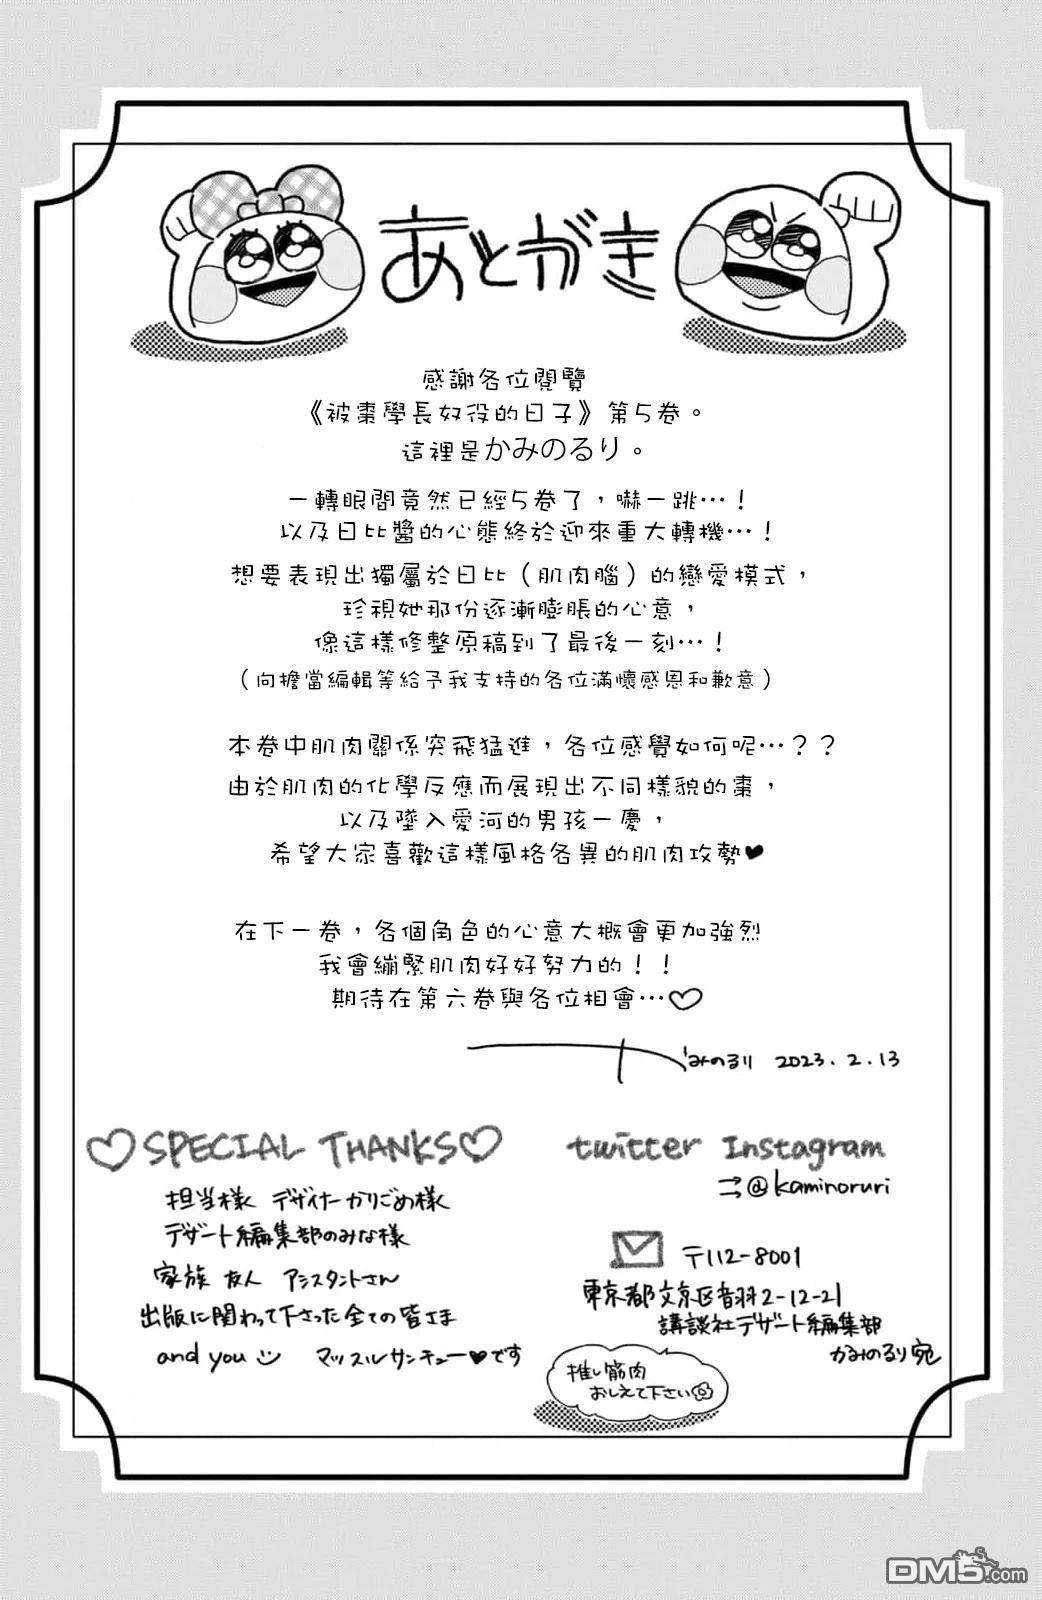 あとがき
感謝各位閱覽
《被棗學長奴役的日子》第5卷。
這裡是かみのるり。
一轉眼間竟然已經5卷了，嚇一跳…！
以及日比醬的心態終於迎來重大轉機…！
想要表現出獨屬於日比（肌肉腦）的戀愛模式，
珍視她那份逐漸膨脹的心意，
像這樣修整原稿到了最後一刻…！
（向擔當編輯等給予我支持的各位滿懷感恩和歉意）
本卷中肌肉關係突飛猛進，各位感覺如何呢…？？
由於肌肉的化學反應而展現出不同樣貌的棗，
以及墜入愛河的男孩一慶，
希望大家喜歡這樣風格各異的肌肉攻勢♥
在下一卷，各個角色的心意大概會更加強烈
我會繃緊肌肉好好努力的！！
期待在第六卷與各位相會…♡
かみのるり 2023.2.13
♡SPECIAL THANKS♡
担当様 デザイナーかりごめ様
デザート編集部のみな様
家族 友人 アシスタントさん
出版に関わって下さった全ての皆さま
and you マッスルサンキュー♥です
twitter Instagram
⇉@kaminoruri
〒112-8001
東京都文京区音羽2-12-21
講談社デザート編集部
かみのるり宛
推し筋肉
おしえて下さい
DM5.com